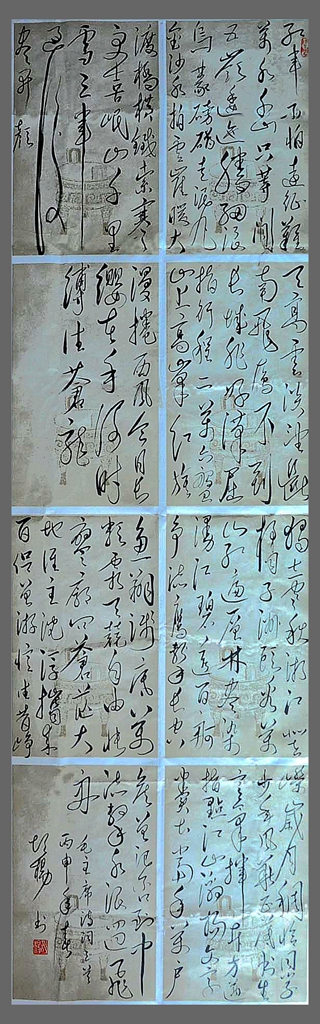 红军不怕远征难
万水千山只等闲
五岭逶迤腾细浪
乌蒙磅礴走泥丸
金沙水拍云崖暖大
渡桥横铁索寒
更喜岷山千里
雪三军
过后
尽开颜
天高云淡望断
南飞雁不到
长城非好汉屈
指行程二万六盘
山上高峰红旗
漫卷西风今日长
缨在手何时
缚住苍龙
独立寒秋湘江北
去橘子洲头看万
山红遍层林尽染
漫江碧透百舸
争流鹰击长空
鱼翔浅底万
类霜天竞自由怅
寥廓问苍茫大
地谁主沉浮携来
百侣曾游忆往昔峥
嵘岁月稠恰同学
少年风华正茂书生
意气挥斥方遒
指点江山激扬文字
粪土当年万户
侯曾记否到中
流击水浪遏飞
舟
毛主席诗词三首
丙申年春
胡杨书